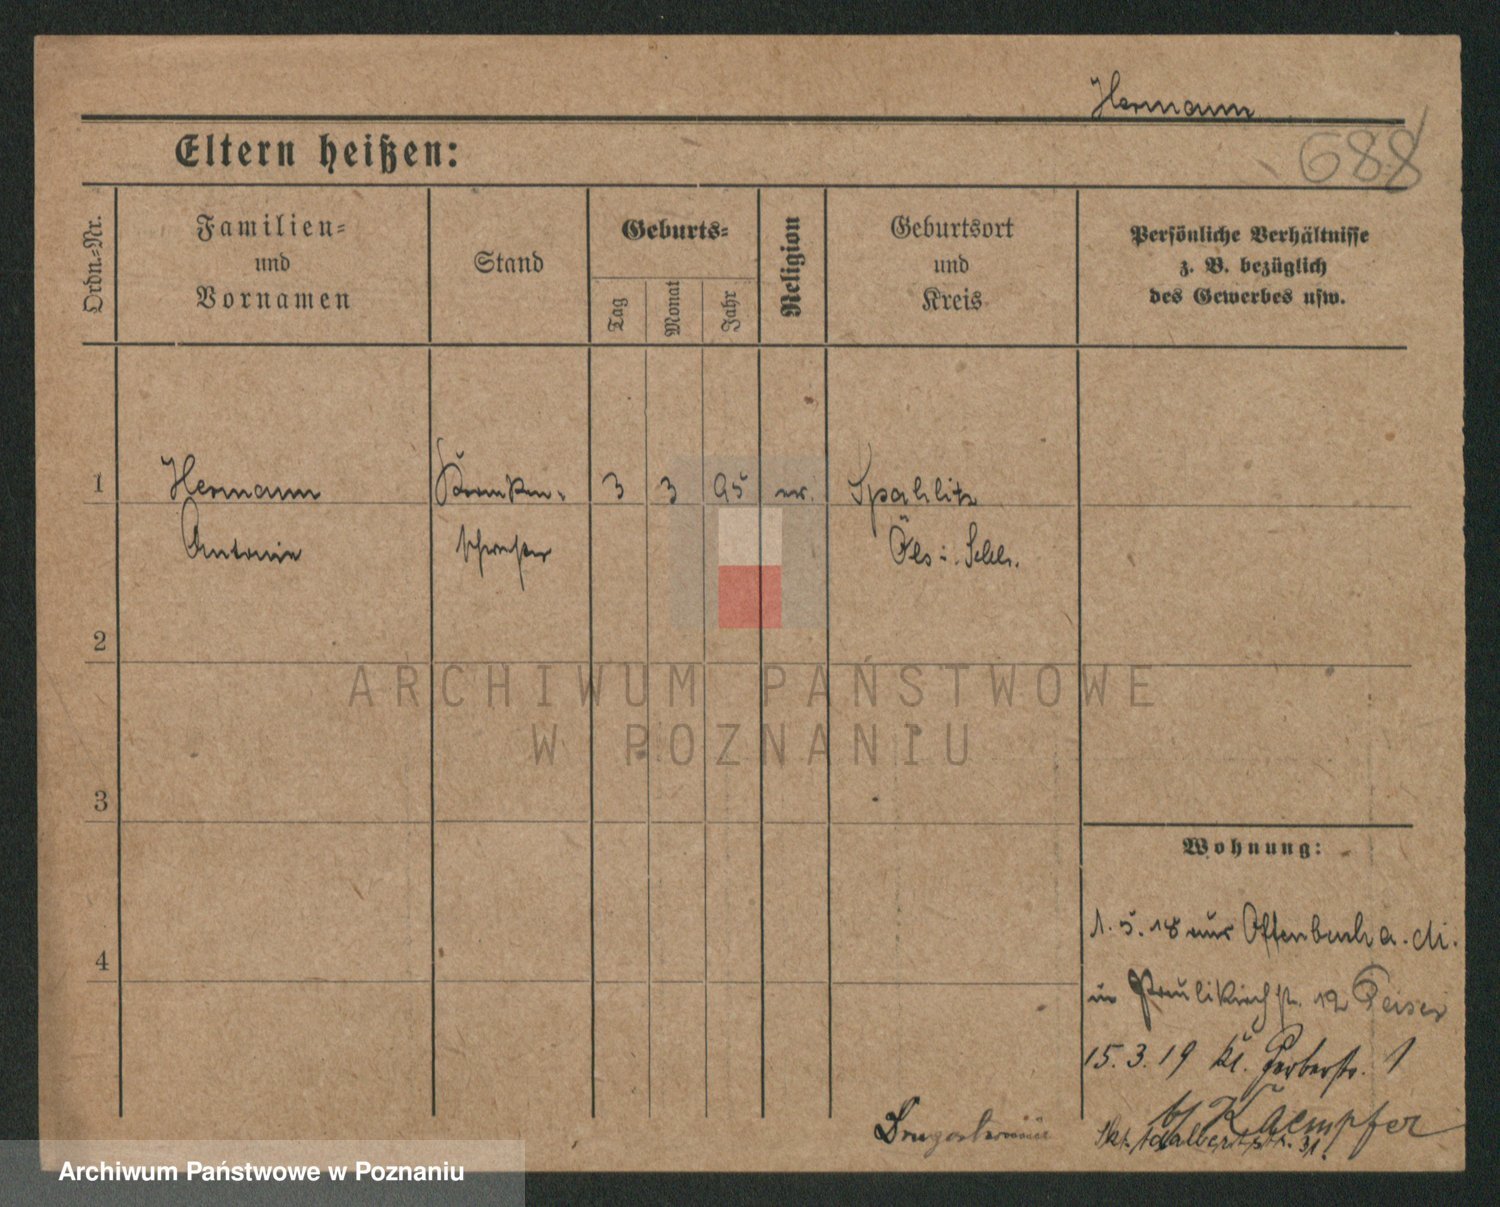 Hermann
688
Eltern heißen:
Ordn.-Nr.
Familien-
und
Vornamen
Stand
Geburts-
Tag
Monat
Jahr
Religion
Geburtsort
und
Kreis
Persönliche Verhältnisse
z. B. bezüglich
des Gewerbes usw.
1 Hermann Kranken- 3 3 95 ev. Spahlitz
Antonie schwester Öls i. Schl.
2
ARCHIWUM PAŃSTWOWE
W POZNANIU
3
Wohnung:
4
1.5.18 aus Offenbach a. M.
in Paulikirchstr. 12 Peiser
15.3.19 Kl. Gerberstr. 1
b/ Kaempfer
Skt. Adalbertstr. 31.
Archiwum Państwowe w Poznaniu